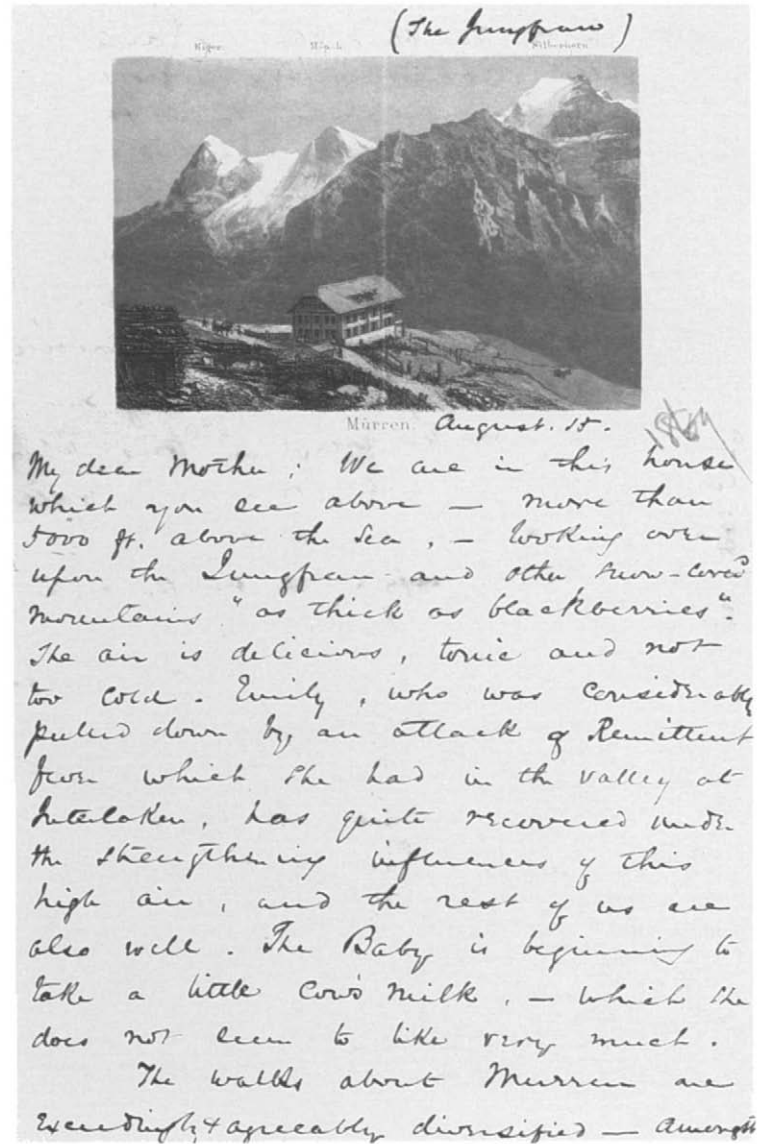 (The Jungfrau)
Eiger. Mönch. Silberhorn
Mürren. August. 15.
1869
My dear Mother; We are in this house
which you see above — more than
5000 ft. above the Sea, — looking over
upon the Jungfrau and other snow-cover'd
mountains "as thick as blackberries".
The air is delicious, tonic and not
too cold. Emily, who was considerably
pulled down by an attack of Remittent
fever which she had in the valley at
Interlaken, has quite recovered under
the strengthening influences of this
high air, and the rest of us are
also well. The Baby is beginning to
take a little Cow's milk, — which she
does not seem to like very much.
The walks about Murren are
Exceedingly & agreeably diversified — Amongst